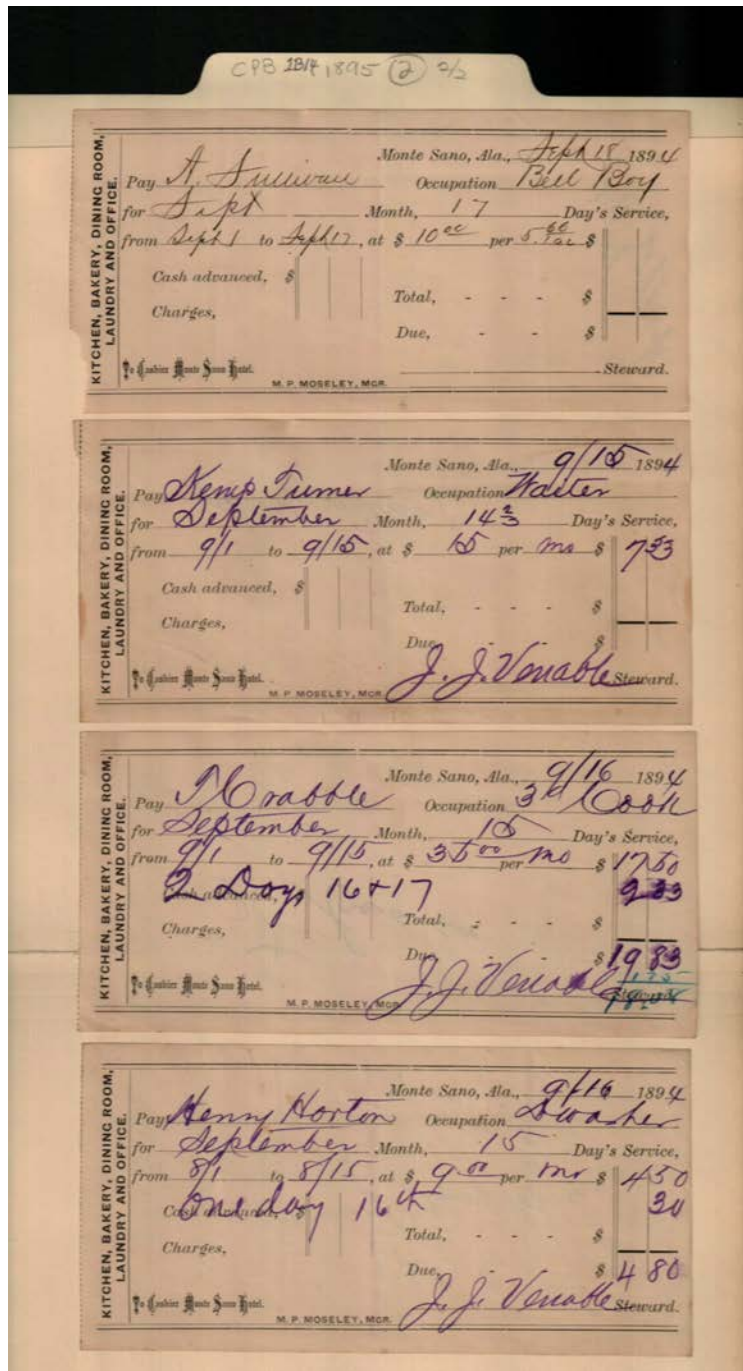 CPB 1B14 1895 (2) 2/2
KITCHEN, BAKERY, DINING ROOM,
LAUNDRY AND OFFICE.
Monte Sano, Ala., Sept 18 1894
Pay A. Sullivan Occupation Bell Boy
for Sept Month, 17 Day's Service,
from Sept 1 to Sept 17, at $ 10 00 per $
Cash advanced, $
Total, - - - $
Charges,
Due, - - $
To Cashier Monte Sano Hotel. Steward.
M. P. MOSELEY, MGR.
KITCHEN, BAKERY, DINING ROOM,
LAUNDRY AND OFFICE.
Monte Sano, Ala., 9/15 1894
Pay Kemp Turner Occupation Waiter
for September Month, 14 2/3 Day's Service,
from 9/1 to 9/15, at $ 15 per mo $ 7 33
Cash advanced, $
Total, - - - $
Charges,
Due, - - $
To Cashier Monte Sano Hotel. J. J. Venable Steward.
M. P. MOSELEY, MGR.
KITCHEN, BAKERY, DINING ROOM,
LAUNDRY AND OFFICE.
Monte Sano, Ala., 9/16 1894
Pay T Crabble Occupation 3d Cook
for September Month, 15 Day's Service,
from 9/1 to 9/15, at $ 35 00 per mo $ 17 50
Cash advanced, 2 Days 16 + 17 2 33
Total, - - - $
Charges,
Due, $ 19 83
To Cashier Monte Sano Hotel. J. J. Venable Steward.
M. P. MOSELEY, MGR.
KITCHEN, BAKERY, DINING ROOM,
LAUNDRY AND OFFICE.
Monte Sano, Ala., 9/16 1894
Pay Henry Horton Occupation Dwasher
for September Month, 15 Day's Service,
from 8/1 to 8/15, at $ 9 00 per mo $ 4 50
Cash advanced, $ One day 16th 30
Total, - - - $
Charges,
Due, - - $ 4 80
To Cashier Monte Sano Hotel. J. J. Venable Steward.
M. P. MOSELEY, MGR.